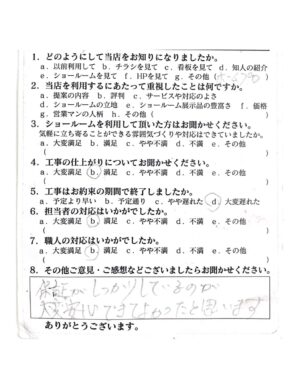 1．どのようにして当店をお知りになりましたか。
a．以前利用して b．チラシを見て c．看板を見て d．知人の紹介
e．ショールームを見て f．HPを見て g．その他（
2．当店を利用するにあたって重視したことは何ですか。
a．提案の内容 b．評判 c．サービスや対応のよさ
d．ショールームの立地 e．ショールーム展示品の豊富さ f．価格
g．営業マンの人柄 h．その他（
3．ショールームを利用して頂いた方はお聞かせください。
気軽に立ち寄ることができる雰囲気づくりや対応はできていましたか。
a．大変満足 b．満足 c．やや不満 d．不満 e．その他
（
4．工事の仕上がりについてお聞かせください。
a．大変満足 b．満足 c．やや不満 d．不満 e．その他（
5．工事はお約束の期間で終了しましたか。
a．予定より早い b．予定通り c．やや遅れた d．大変遅れた
6．担当者の対応はいかがでしたか。
a．大変満足 b．満足 c．やや不満 d．不満 e．その他
（
7．職人の対応はいかがでしたか。
a．大変満足 b．満足 c．やや不満 d．不満 e．その他（
8．その他ご意見・ご感想などございましたらお聞かせください。
保証がしっかりしているのが
大変安心できてよかったと思います
ありがとうございます。